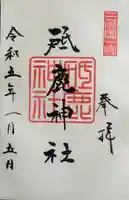 奉拝
砥鹿神社
令和五年一月五日